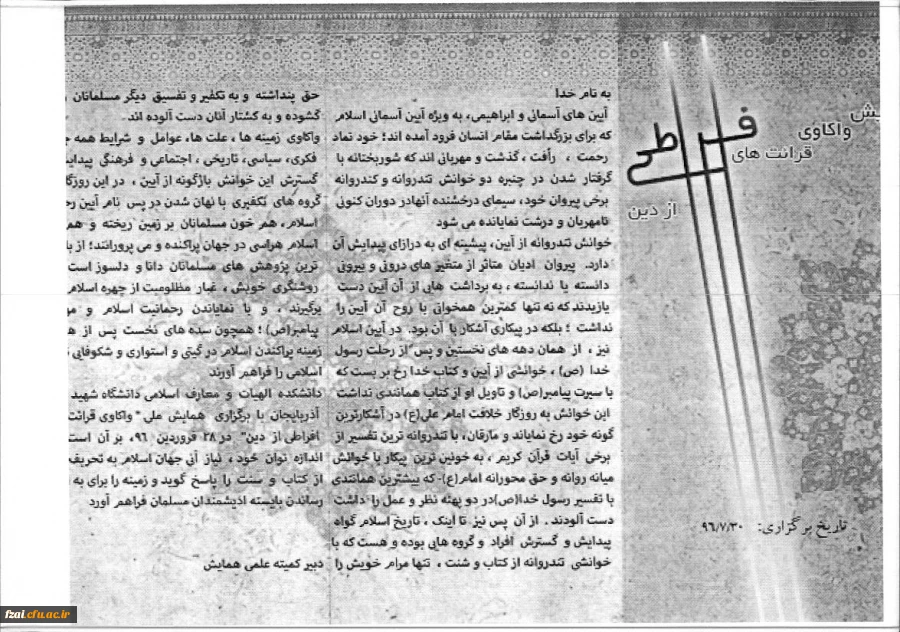 واکاوی
قرائت های
افراطی
از دین
تاریخ برگزاری: ۹۶/۷/۳۰
به نام خدا
آیین های آسمانی و ابراهیمی، به ویژه آیین آسمانی اسلام
که برای بزرگداشت مقام انسان فرود آمده اند؛ خود نماد
رحمت ، رأفت، گذشت و مهربانی اند که شوربختانه با
گرفتار شدن در چنبره دو خوانش تندروانه و کندروانه
برخی پیروان خود، سیمای درخشنده آنهادر دوران کنونی
نامهربان و درشت نمایانده می شود
خوانش تندروانه از آیین، پیشینه ای به درازای پیدایش آن
دارد. پیروان ادیان متاثر از متغیر های درونی و بیرونی
دانسته یا ندانسته ، به برداشت هایی از آن آیین دست
یازیدند که نه تنها کمترین همخوانی با روح آن آیین را
نداشت ؛ بلکه در پیکاری آشکار با آن بود. در آیین اسلام
نیز ، از همان دهه های نخستین و پس از رحلت رسول
خدا (ص) ، خوانشی از آیین و کتاب خدا رخ بر بست که
با سیرت پیامبر(ص) و تاویل او از کتاب همانندی نداشت
این خوانش به روزگار خلافت امام علی(ع) در آشکارترین
گونه خود رخ نمایاند و مارقان، با تندروانه ترین تفسیر از
برخی آیات قرآن کریم ، به خونین ترین پیکار با خوانش
میانه روانه و حق محورانه امام(ع)-که بیشترین همانندی
با تفسیر رسول خدا(ص)در دو پهنه نظر و عمل را داشت
دست آلودند . از آن پس نیز تا اینک ، تاریخ اسلام گواه
پیدایش و گسترش افراد و گروه هایی بوده و هست که با
خوانشی تندروانه از کتاب و سنت ، تنها مرام خویش را
حق پنداشته و به تکفیر و تفسیق دیگر مسلمانان
گشوده و به کشتار آنان دست آلوده اند.
واکاوی زمینه ها ، علت ها، عوامل و شرایط همه
فکری، سیاسی، تاریخی ، اجتماعی و فرهنگی
گسترش این خوانش باژگونه از آیین ، در این
گروه های تکفیری با نهان شدن در پس نام آیین
اسلام، هم خون مسلمانان بر زمین ریخته و هم
اسلام هراسی در جهان پراکنده و می پرورانند؛ از
ترین پژوهش های مسلمانان دانا و دلسوز است
روشنگری خویش ، غبار مظلومیت از چهره اسلام
برگیرند ، و با نمایاندن رحمانیت اسلام و
پیامبر(ص) ؛ همچون سده های نخست پس از
زمینه پراکندن اسلام در گیتی و استواری و شکوفایی
اسلامی را فراهم آورند
دانشکده الهیات و معارف اسلامی دانشگاه شهید
آذربایجان با برگزاری همایش ملی "واکاوی قرائت
افراطی از دین" در ۲۸ فروردین ۹۶، بر آن است
اندازه توان خود ، نیاز آنی جهان اسلام به
از کتاب و سنت را پاسخ گوید و زمینه را برای به
رساندن بایسته اندیشمندان مسلمان فراهم آورد
دبیر کمیته علمی همایش
fzai.cfu.ac.ir